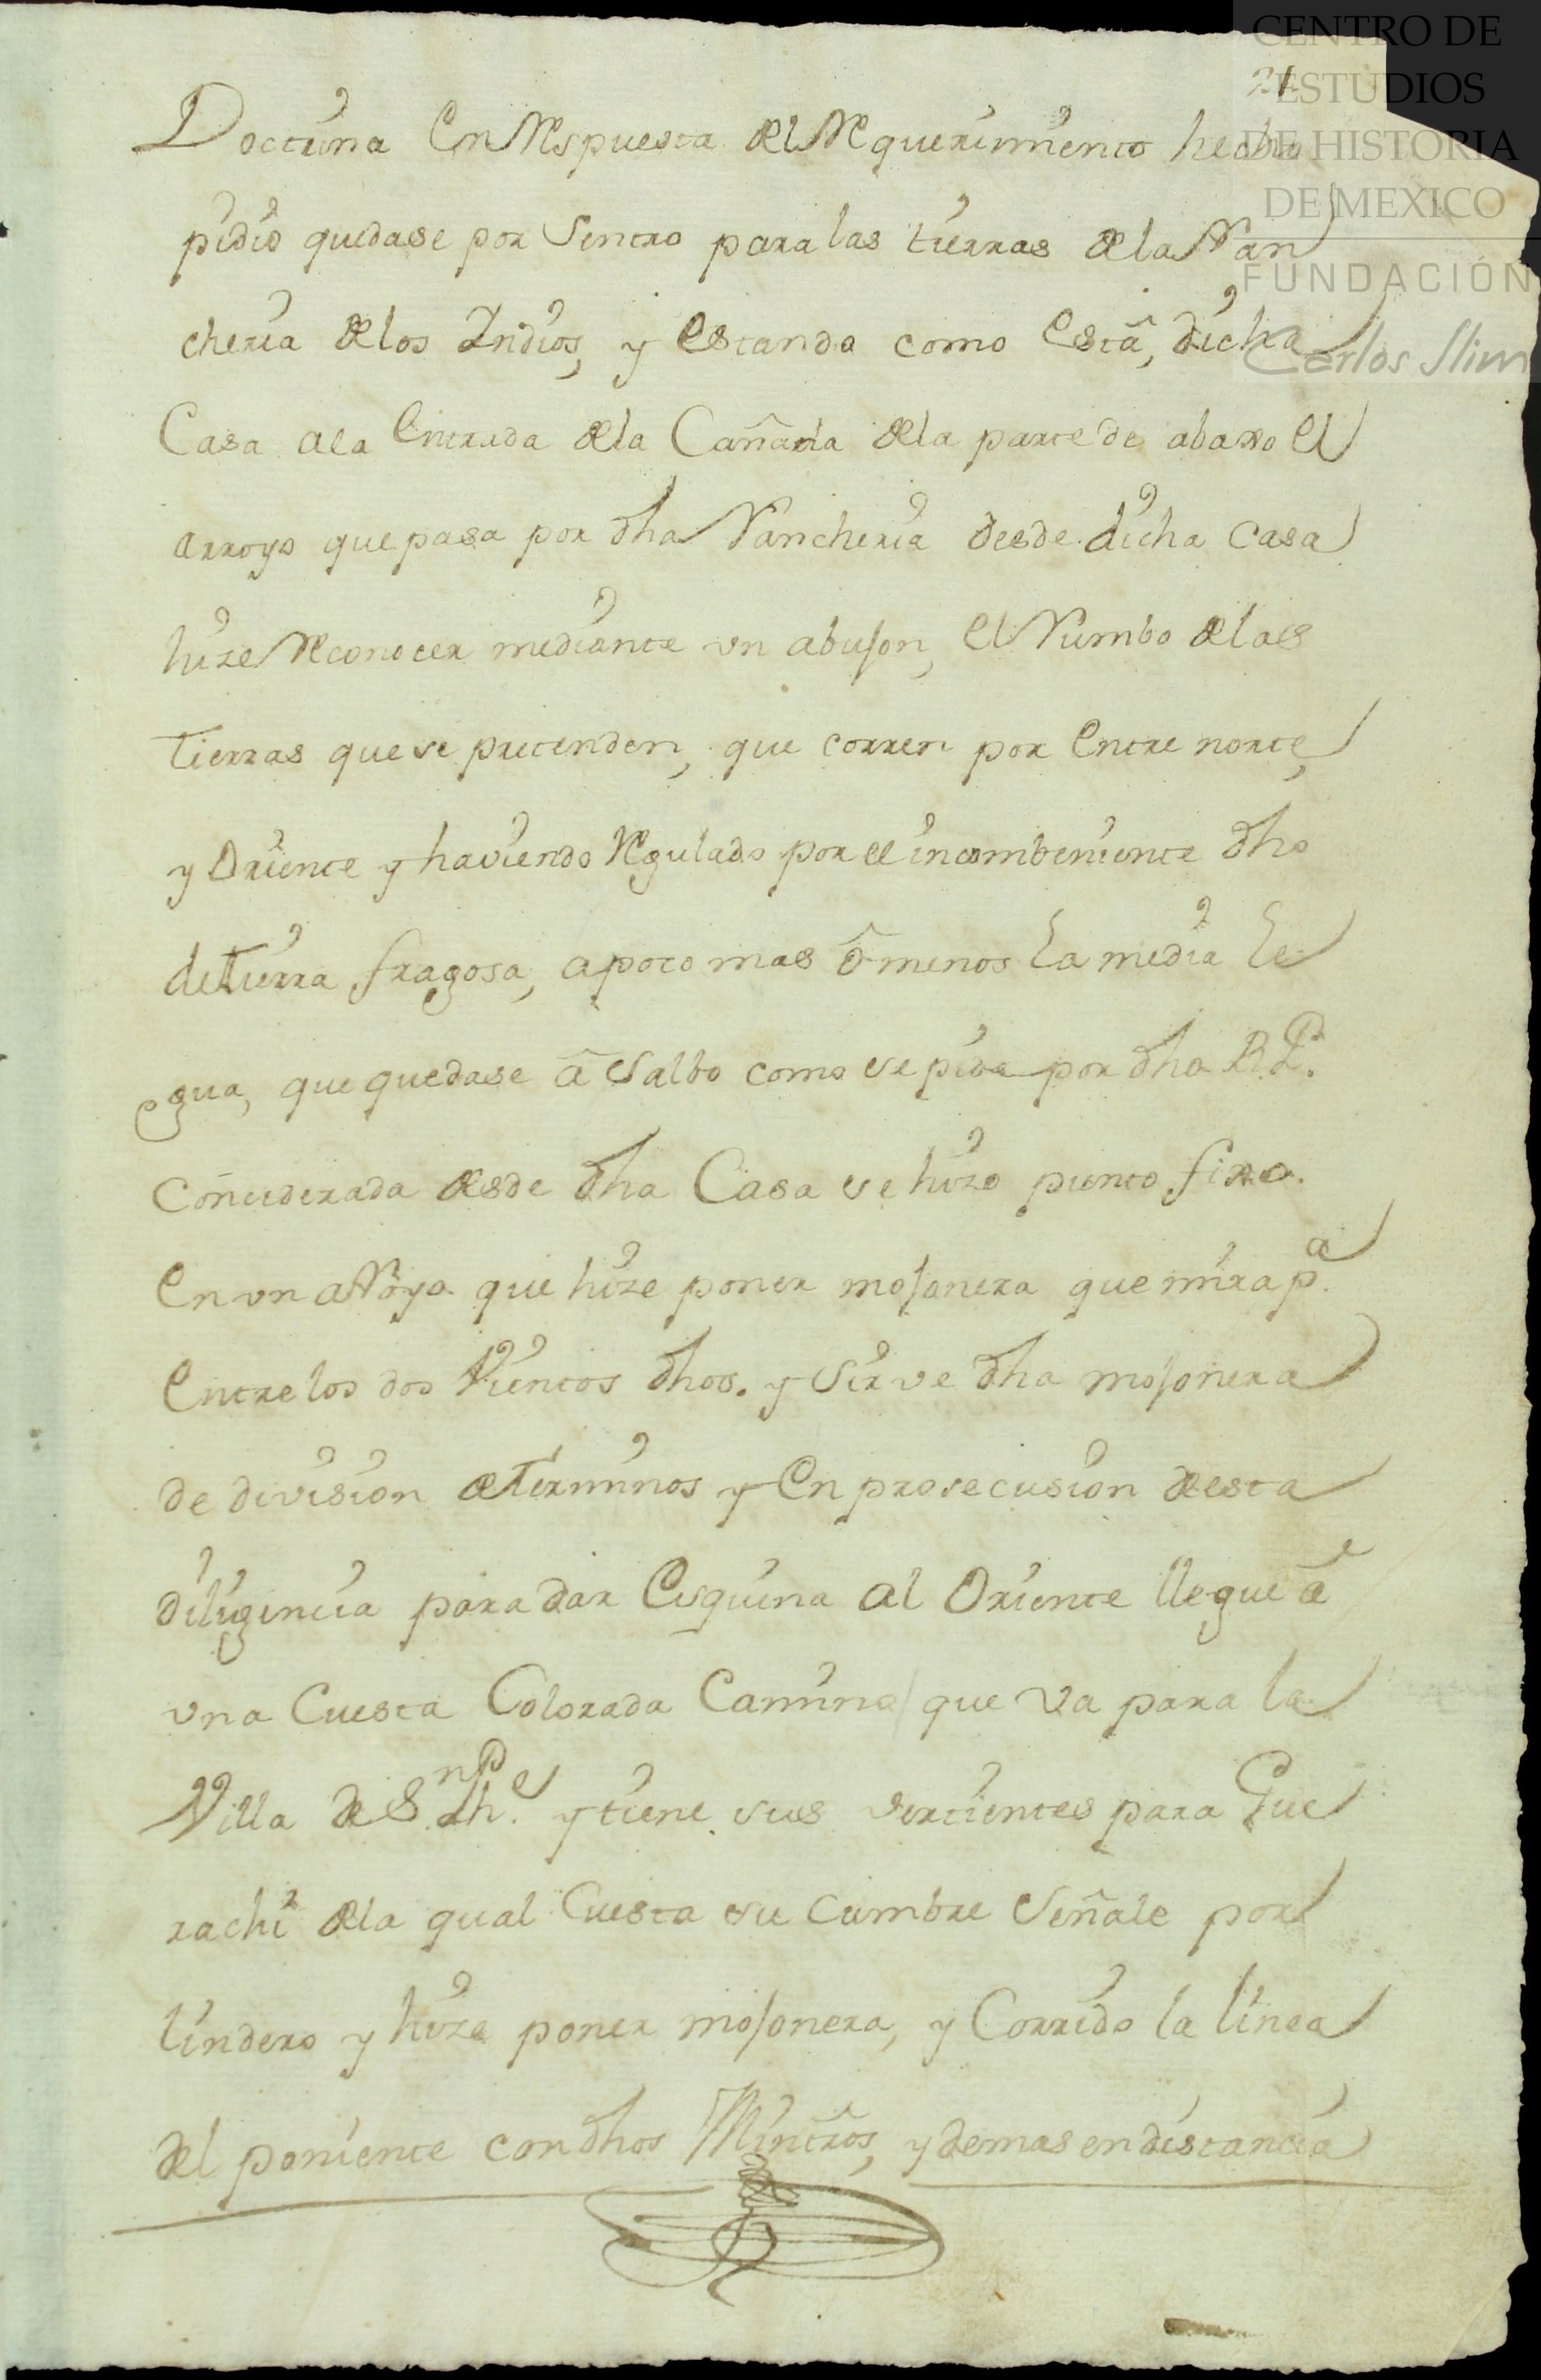 CENTRO DE
ESTUDIOS
DE HISTORIA
DE MEXICO
FUNDACIÓN
Carlos Slim
21
Doctrina En Respuesta del Requerimiento hecho
pidio quedase por Sentro para las tierras de la Ran
cheria de los Indios, y Estando como Está, dicha
Casa a la Entrada de la Cañada de la parte de abaxo El
arroyo que pasa por dha Rancheria desde dicha Casa
hize Reconocer mediante vn abujon, El Rumbo de las
tierras que se pretenden, que corren por Entre norte,
y Oriente y haviendo Regulado por el incombeniente dho
de tierra fragosa, a poco mas ô menos La media le
gua, que quedase â salbo como se pide por dho R. Pe.
Conciderada desde dha Casa se hizo punto fixo.
En vn aRoyo que hize poner mojonera que mira pa.
Entre los dos Vientos dhos. y Sirve dha mojonera
de division de Terminos y En prosecusion de esta
diligencia para dar Esquina al Oriente llegue â
vna Cuesta Colorada Camino que va para la
Villa de Sn Phe. y tiene sus vertientes para Gue
rachi de la qual Cuesta su Cumbre Señale por
lindero y hize poner mojonera, y Corrido la linea
del poniente con dhos Mintros, y demas en distancia